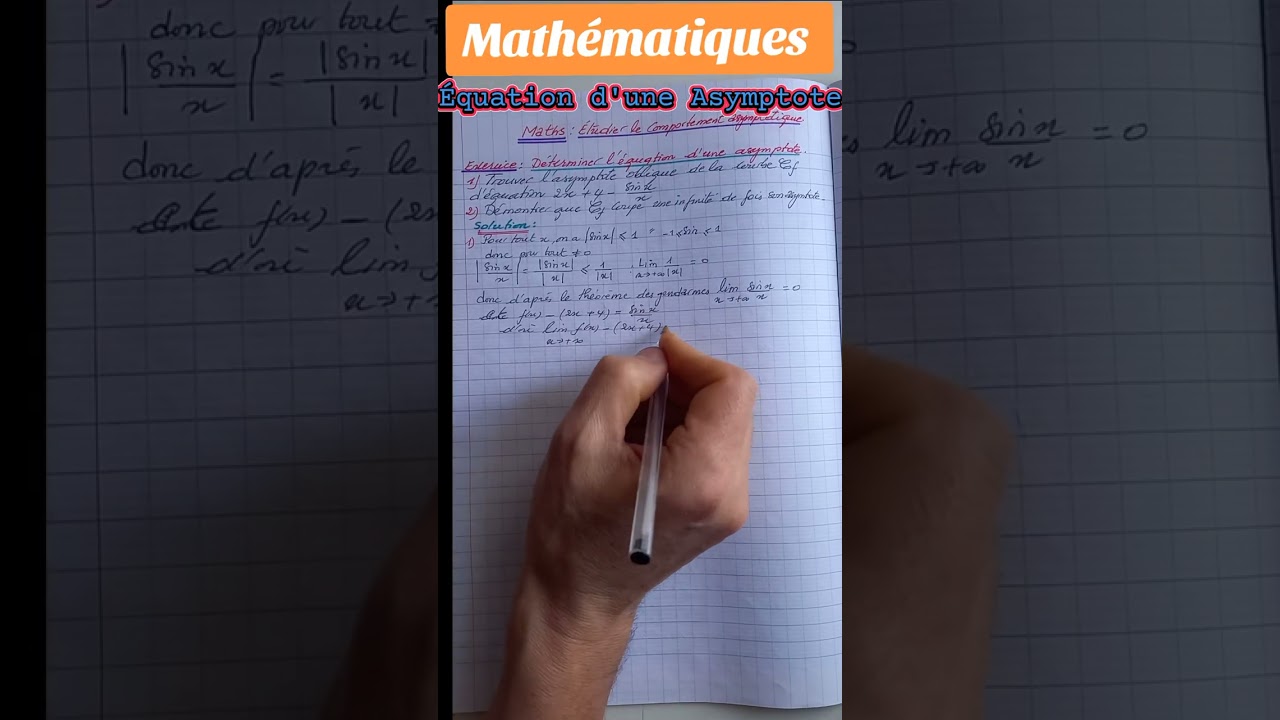 Mathématiques
Équation d'une Asymptote
Maths : Étudier le Comportement asymptotique
Exercice : Determiner l'équation d'une asymptote.
1) Trouver l'asymptote oblique de la courbe Cf
d'équation 2x + 4 - sin x / x
2) Démontrer que Cf coupe une infinité de fois son asymptote.
Solution :
1) Pour tout x, on a |sin x| ≤ 1 " -1 ≤ sin ≤ 1
donc pour tout ≠ 0
|sin x / x| = |sin x| / |x| ≤ 1 / |x| Lim x→+∞ 1 / |x| = 0
donc d'après le théorème des gendarmes lim x→+∞ sin x / x = 0
f(x) - (2x + 4) = sin x / x
d'où lim x→+∞ f(x) - (2x + 4)
donc pour tout
|sin x / x| = |sin x| / |x|
donc d'après le
lim x→+∞ sin x / x = 0
f(x) - (2x
d'où lim